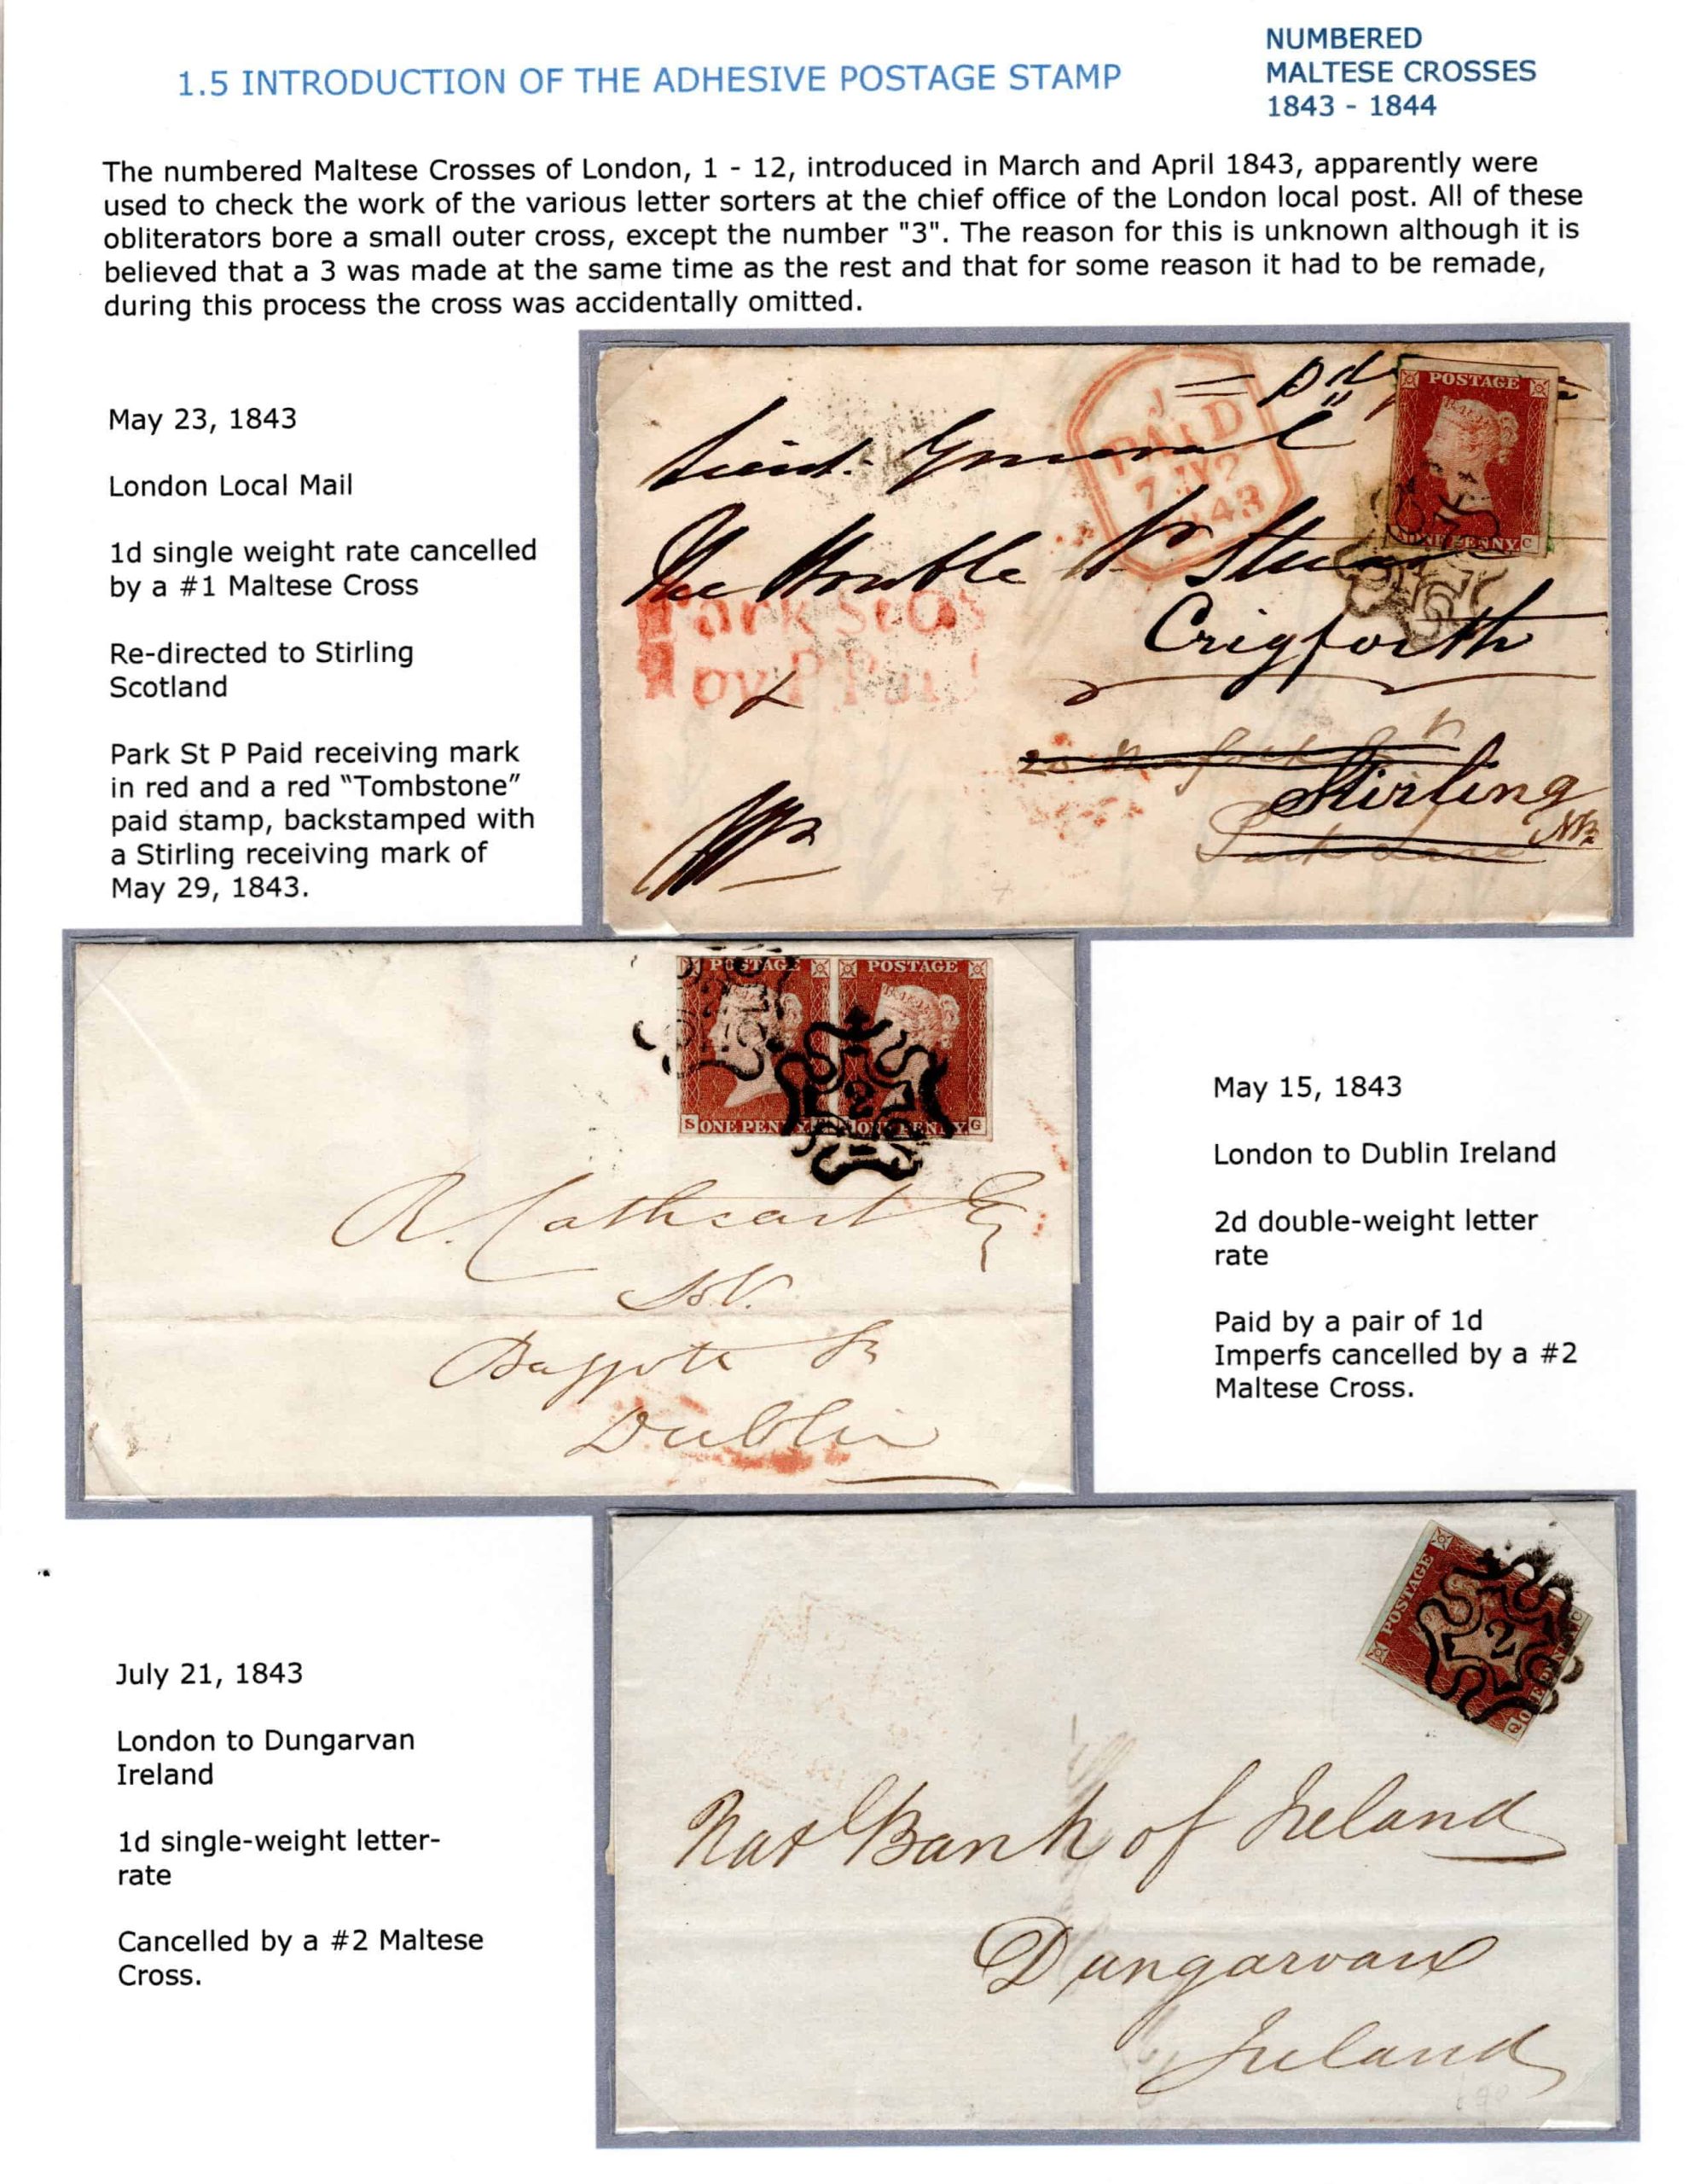 1.5 INTRODUCTION OF THE ADHESIVE POSTAGE STAMP
NUMBERED
MALTESE CROSSES
1843 - 1844
The numbered Maltese Crosses of London, 1 - 12, introduced in March and April 1843, apparently were
used to check the work of the various letter sorters at the chief office of the London local post. All of these
obliterators bore a small outer cross, except the number "3". The reason for this is unknown although it is
believed that a 3 was made at the same time as the rest and that for some reason it had to be remade,
during this process the cross was accidentally omitted.
May 23, 1843
London Local Mail
1d single weight rate cancelled
by a #1 Maltese Cross
Re-directed to Stirling
Scotland
Park St P Paid receiving mark
in red and a red “Tombstone”
paid stamp, backstamped with
a Stirling receiving mark of
May 29, 1843.
J
PAID
1843
POSTAGE
PENNY C
General
The Honble
Crigforth
Stirling
NB
Park Lane
Park St
Paid
POSTAGE POSTAGE
S ONE PENNY ONE PENNY G
2
R. Cathcart Esq
Baggote St
Dublin
May 15, 1843
London to Dublin Ireland
2d double-weight letter
rate
Paid by a pair of 1d
Imperfs cancelled by a #2
Maltese Cross.
July 21, 1843
London to Dungarvan
Ireland
1d single-weight letter-
rate
Cancelled by a #2 Maltese
Cross.
POSTAGE
2
Q ONE PENNY C
Nat Bank of Ireland
Dungarvan
Ireland